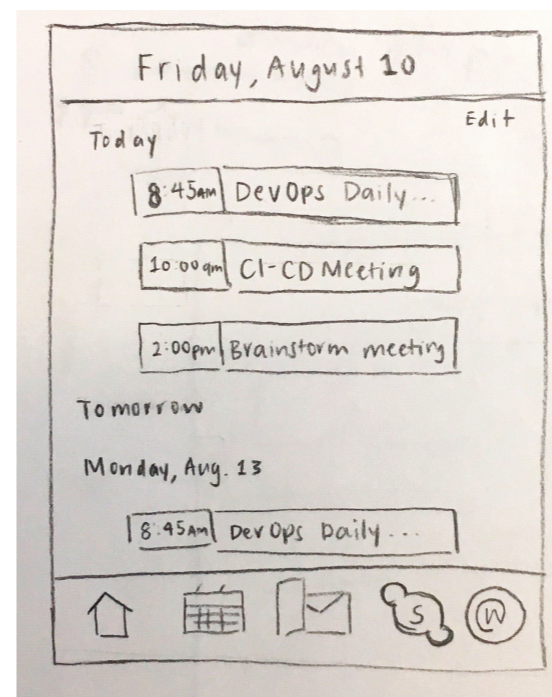 Friday, August 10
Edit
Today
8:45AM DevOps Daily...
10:00am CI-CD Meeting
2:00pm Brainstorm meeting
Tomorrow
Monday, Aug. 13
8:45AM DevOps Daily...
S W